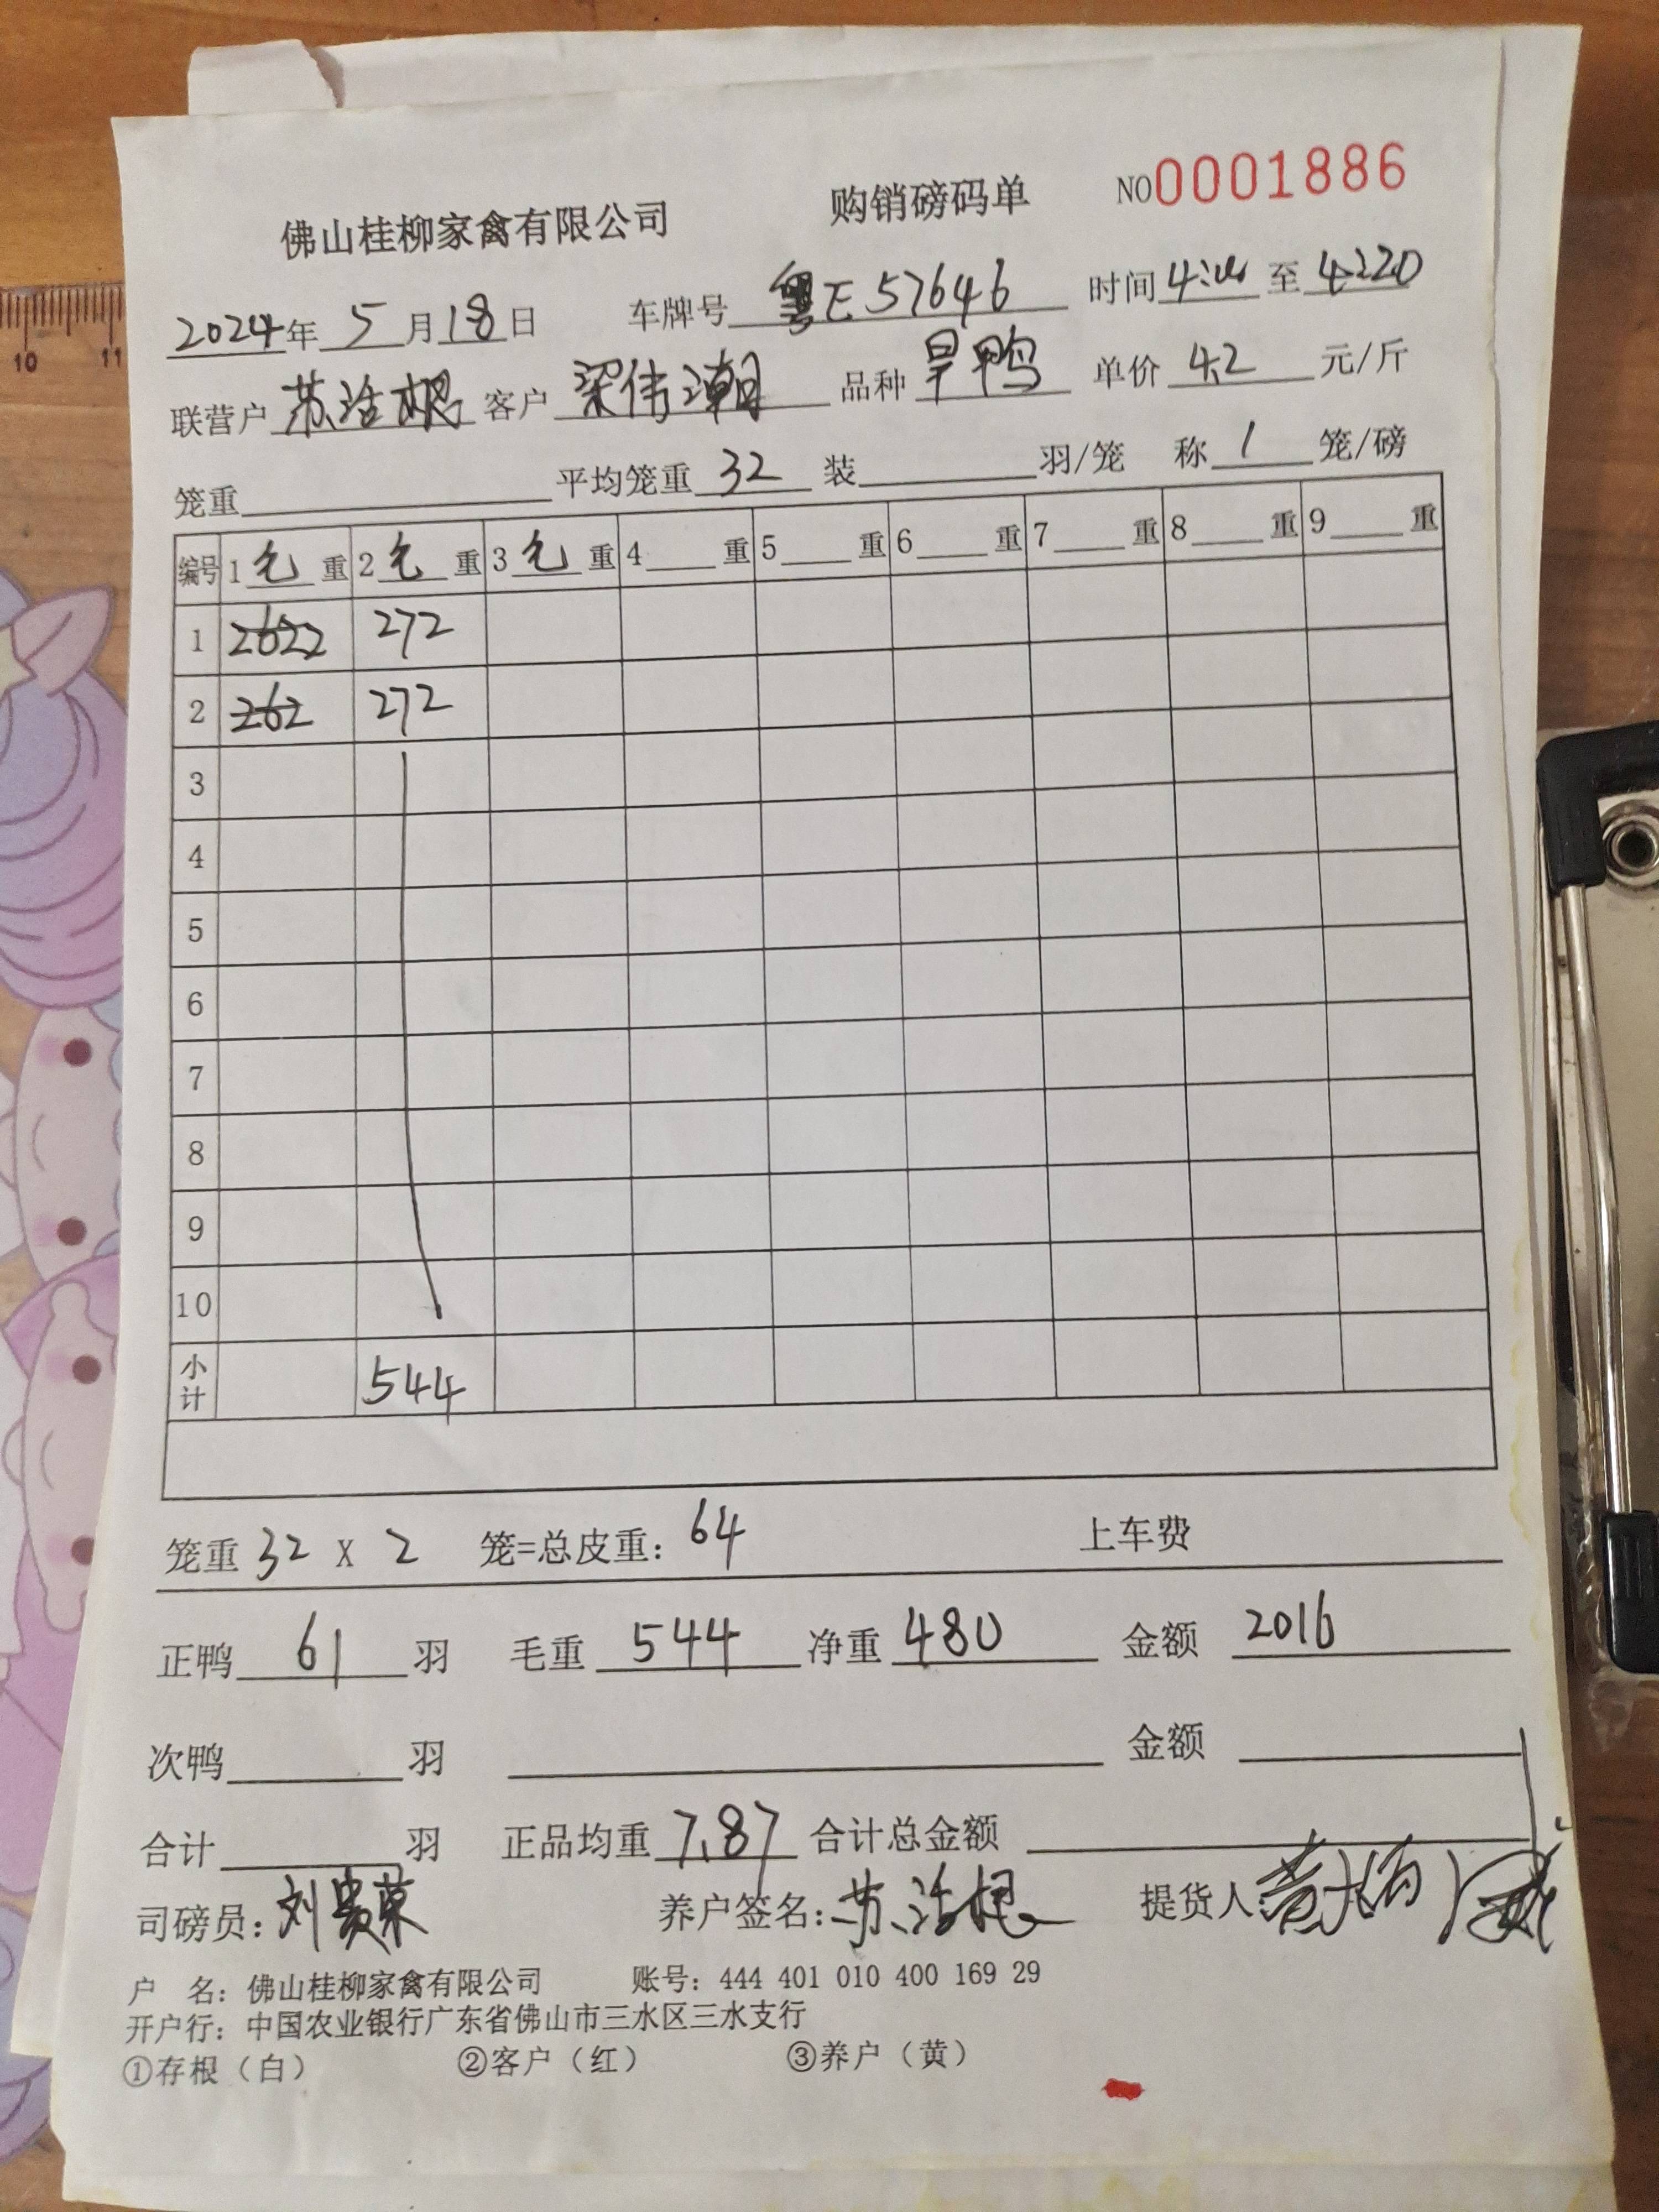 佛山桂柳家禽有限公司 购销磅码单 NO 0001886
2024年 5 月 18 日 车牌号 粤E 57646 时间 至 4:20
联营户 苏活根 客户 梁伟潮 品种 旱鸭 单价 4.2 元/斤
笼重 平均笼重 32 装 羽/笼 称 1 笼/磅
编号 1 毛 重 2 毛 重 3 毛 重 4 重 5 重 6 重 7 重 8 重 9 重
1 2622 272
2 262 272
3
4
5
6
7
8
9
10
小计 544
笼重 32 X 2 笼=总皮重: 64 上车费
正鸭 61 羽 毛重 544 净重 480 金额 2016
次鸭 羽 金额
合计 羽 正品均重 7.87 合计总金额
司磅员: 刘贵荣 养户签名: 苏活根 提货人:
户 名: 佛山桂柳家禽有限公司 账号: 444 401 010 400 169 29
开户行: 中国农业银行广东省佛山市三水区三水支行
①存根（白） ②客户（红） ③养户（黄）
10 11